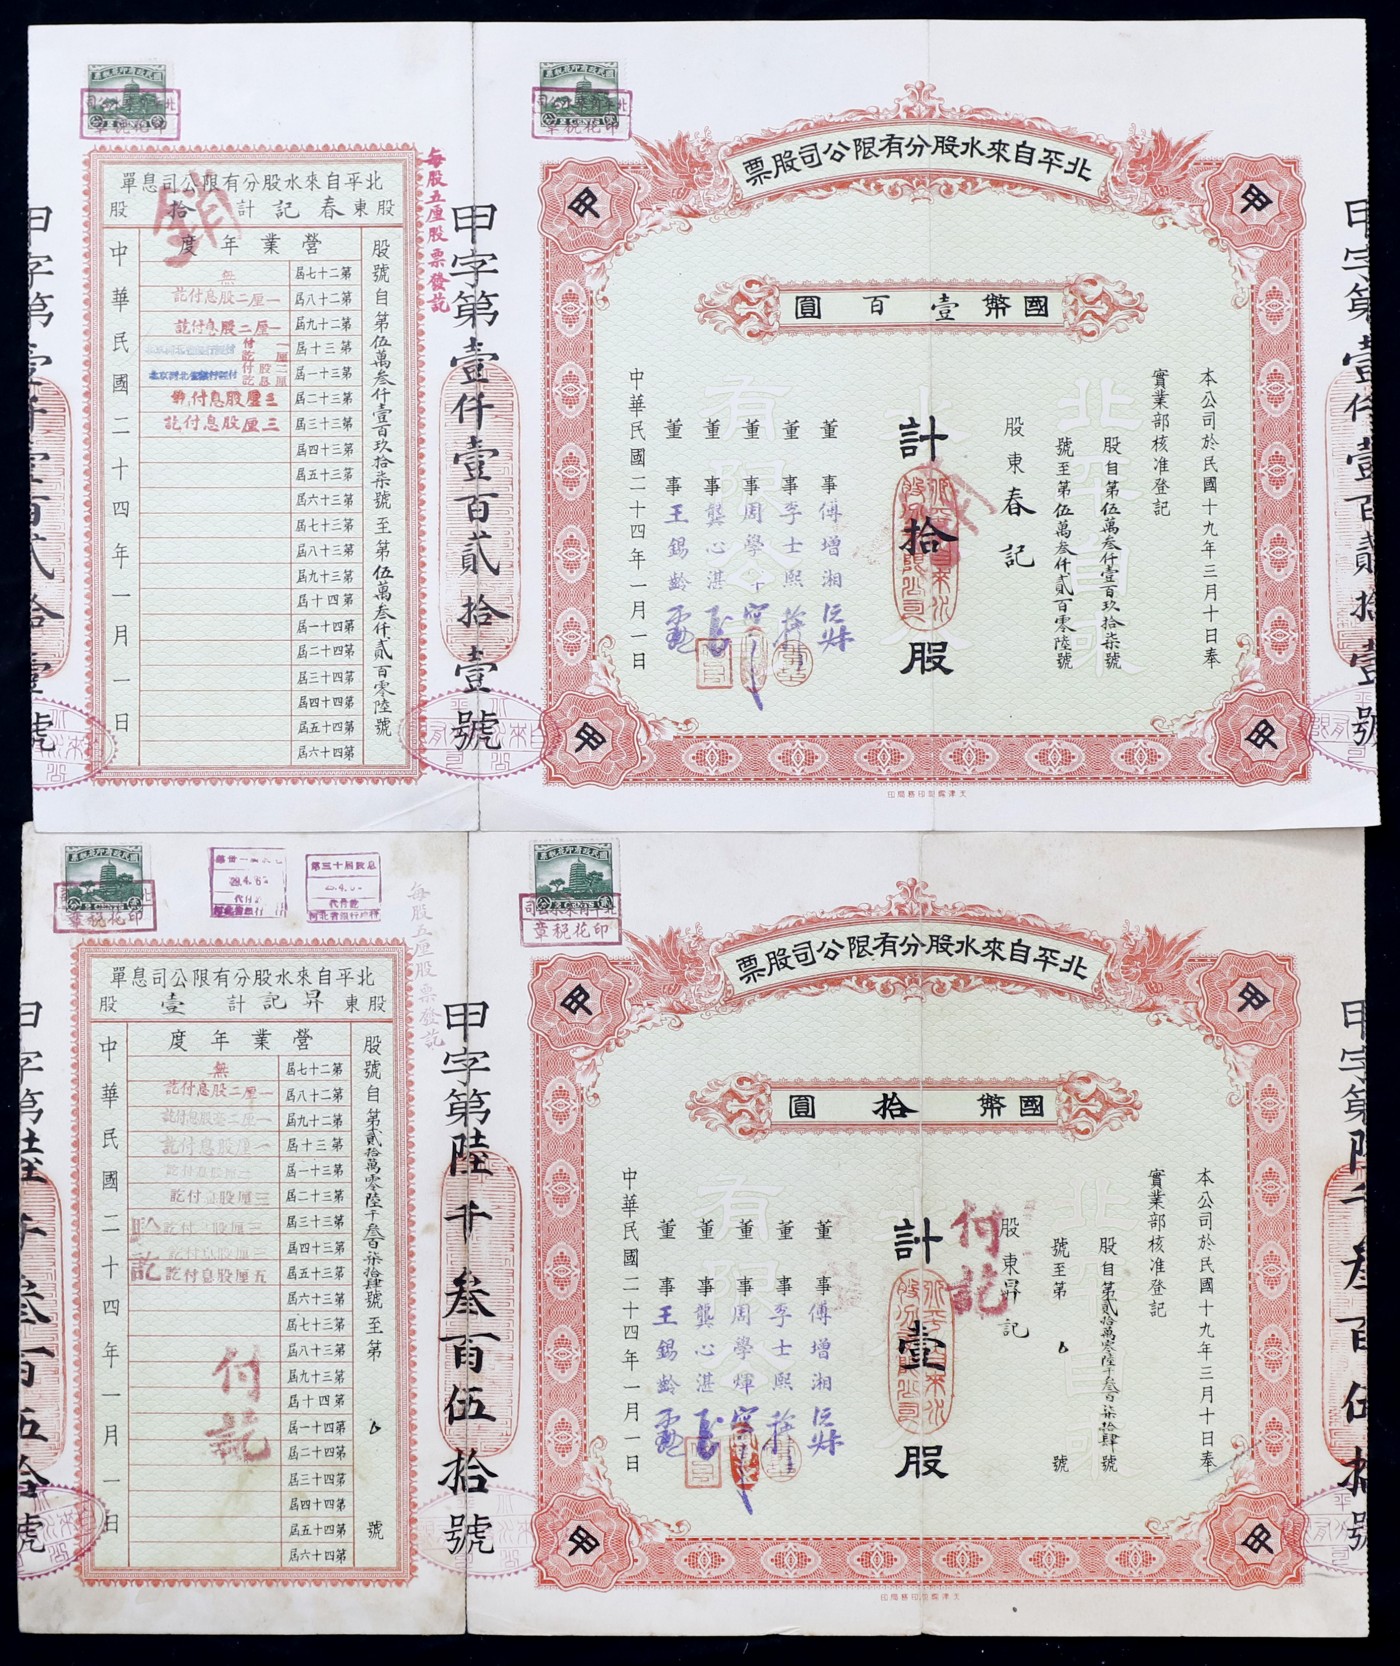 北平自來水股分有限公司股票
國幣壹百圓
本公司於民國十九年三月十日奉
實業部核准登記
股自第伍萬叁仟壹百玖拾柒號
號至第伍萬叁仟貳百零陸號
股東春記
計拾股
董事傅增湘
董事李士熙
董事周學煇
董事龔心湛
董事王錫齡
中華民國二十四年一月一日
甲
甲
甲
甲
甲字第壹仟壹百貳拾壹號
每股五厘股票發訖
北平自來水股分有限公司息單
股東春記計拾股
銷
股號自第伍萬叁仟壹百玖拾柒號至第伍萬叁仟貳百零陸號
營業年度
第二十七屆 無
第二十八屆 一厘二股息付訖
第二十九屆 一厘二股息付訖
第三十屆 一厘付訖
第三十一屆 二厘股息付訖
第三十二屆 三厘股息付
第三十三屆 三厘股息付訖
第三十四屆
第三十五屆
第三十六屆
第三十七屆
第三十八屆
第三十九屆
第四十屆
第四十一屆
第四十二屆
第四十三屆
第四十四屆
第四十五屆
第四十六屆
中華民國二十四年一月一日
印花稅章
印花稅章
北平自來水股分有限公司股票
國幣拾圓
本公司於民國十九年三月十日奉
實業部核准登記
股自第貳拾萬零陸千叁百柒拾肆號
號至第 號
股東昇記
付訖
計壹股
董事傅增湘
董事李士熙
董事周學煇
董事龔心湛
董事王錫齡
中華民國二十四年一月一日
甲
甲
甲
甲
甲字第陸千叁百伍拾號
每股五厘股票發訖
北平自來水股分有限公司息單
股東昇記計壹股
股號自第貳拾萬零陸千叁百柒拾肆號至第 號
營業年度
第二十七屆 無
第二十八屆 一厘二股息付訖
第二十九屆 一厘二毫股息付訖
第三十屆 一厘股息付訖
第三十一屆 二厘股息付訖
第三十二屆 三厘股息付訖
第三十三屆 三厘股息付訖
第三十四屆 三厘股息付訖
第三十五屆 五厘股息付訖
第三十六屆
第三十七屆
第三十八屆
第三十九屆
第四十屆
第四十一屆
第四十二屆
第四十三屆
第四十四屆
第四十五屆
第四十六屆
付訖
中華民國二十四年一月一日
第三十屆股息
代付訖
印花稅章
印花稅章